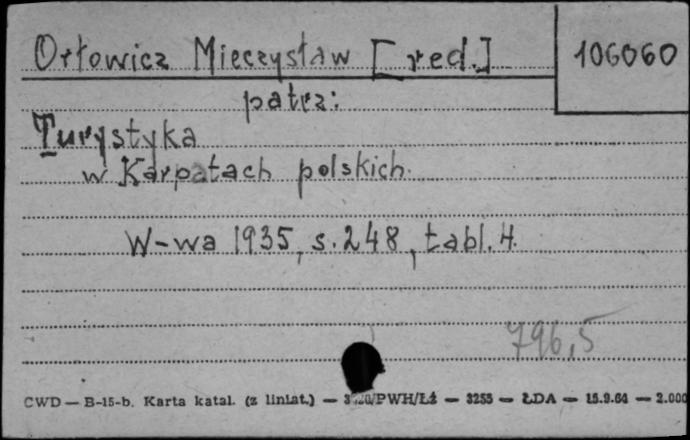 Orłowicz Mieczysław [red.] 106060
patrz:
Turystyka
w Karpatach polskich.
W-wa 1935, s. 248, tabl. 4.
796,5
CWD — B-15-b. Karta katal. (z liniat.) — /PWH/Łź — 3255 — ŁDA — 15.9.64 — 2.000